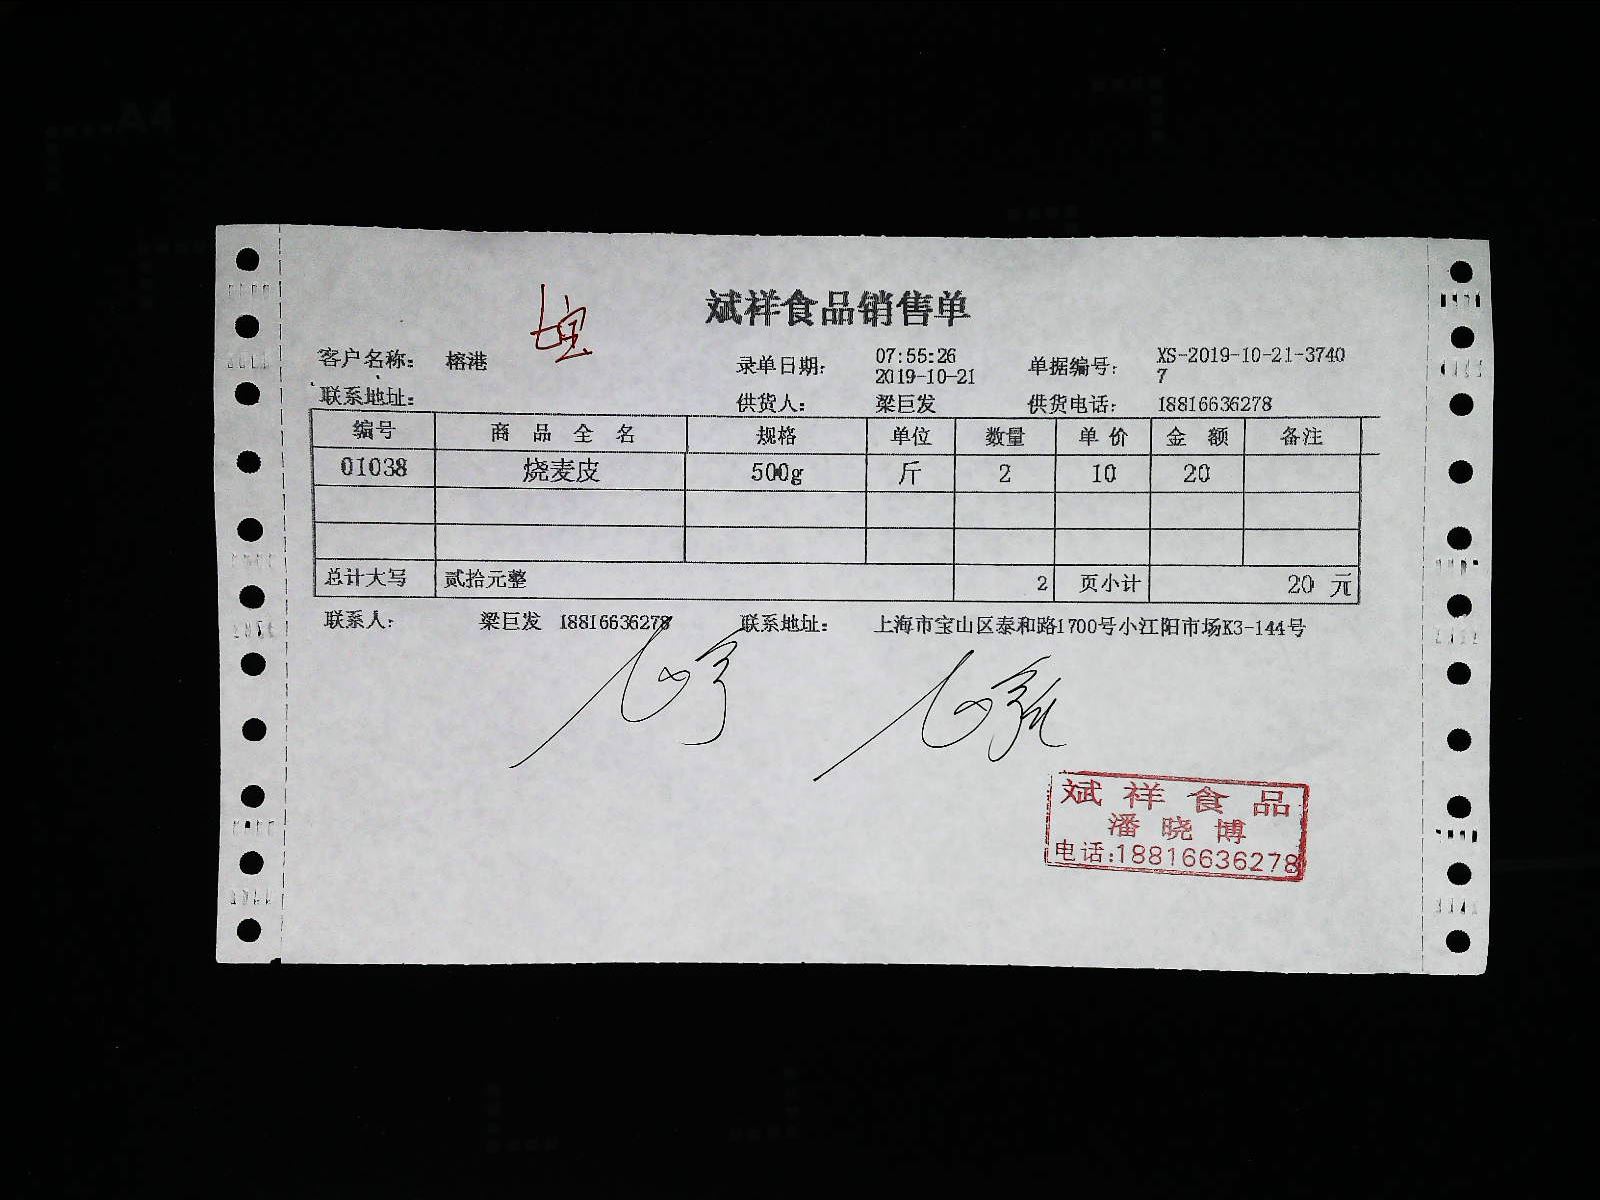 斌祥食品销售单
七宝
客户名称: 榕港 录单日期: 07:55:26 2019-10-21 单据编号: XS-2019-10-21-37407
联系地址: 供货人: 梁巨发 供货电话: 18816636278
编号 商品全名 规格 单位 数量 单价 金额 备注
01038 烧麦皮 500g 斤 2 10 20
总计大写 贰拾元整 2 页小计 20 元
联系人: 梁巨发 18816636278 联系地址: 上海市宝山区泰和路1700号小江阳市场K3-144号
斌祥食品
潘晓博
电话:18816636278